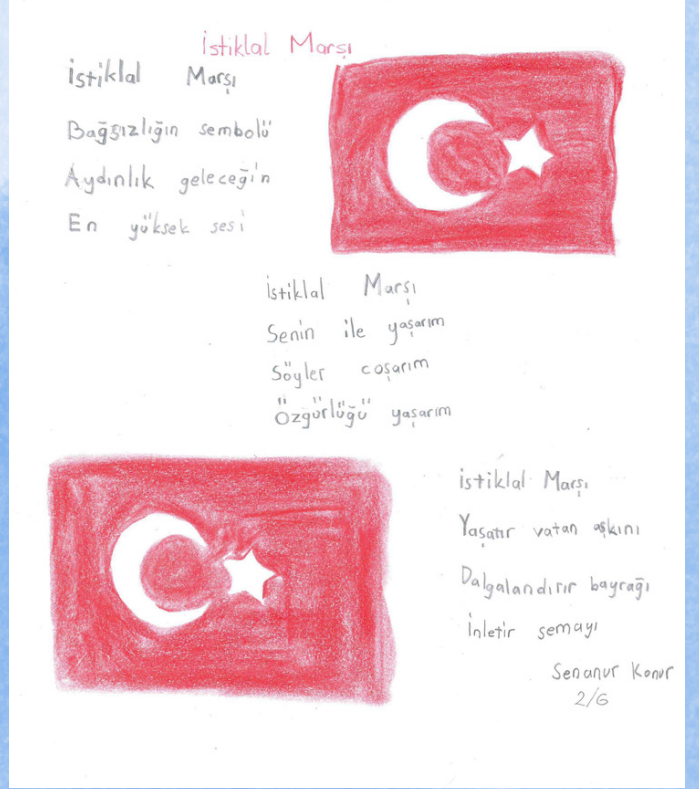 İstiklal Marşı
İstiklal Marşı
Bağsızlığın sembolü
Aydınlık geleceğin
En yüksek sesi
İstiklal Marşı
Senin ile yaşarım
Söyler coşarım
Özgürlüğü yaşarım
İstiklal Marşı
Yaşatır vatan aşkını
Dalgalandırır bayrağı
İnletir semayı
Senanur Konur
2/G